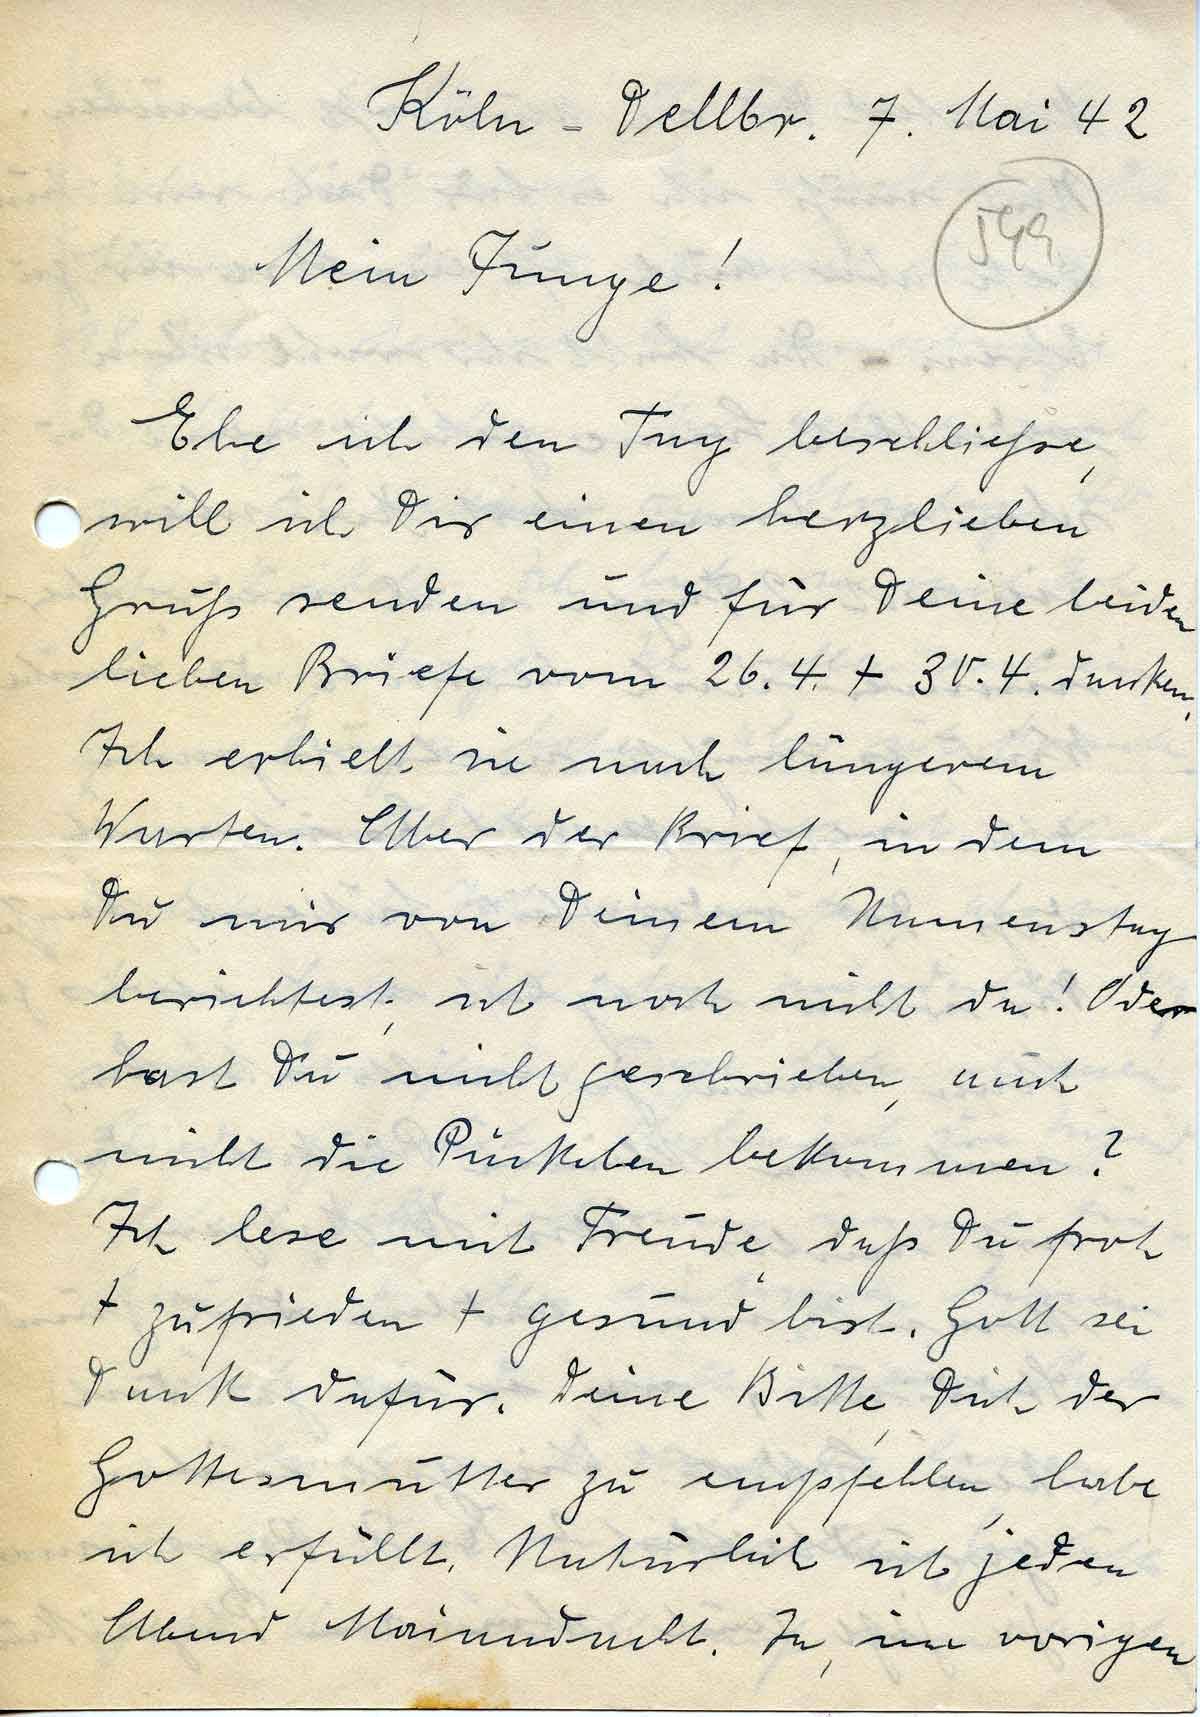 Köln - Dellbr. 7. Mai 42
599
Mein Junge!
Ehe ich den Tag beschließe,
will ich Dir einen herzlieben
Gruß senden und für Deine beiden
lieben Briefe vom 26.4. + 30.4. danken.
Ich erhielt sie nach längerem
Warten. Aber der Brief, in dem
Du mir von Deinem Namenstag
berichtest, ist noch nicht da! Oder
hast Du nicht geschrieben, auch
nicht die Päckchen bekommen?
Ich lese mit Freude, daß Du froh
+ zufrieden + gesund bist. Gott sei
Dank dafür. Deine Bitte, Dich der
Gottesmutter zu empfehlen, habe
ich erfüllt. Natürlich ist jeden
Abend Maiandacht. Ja, im vorigen